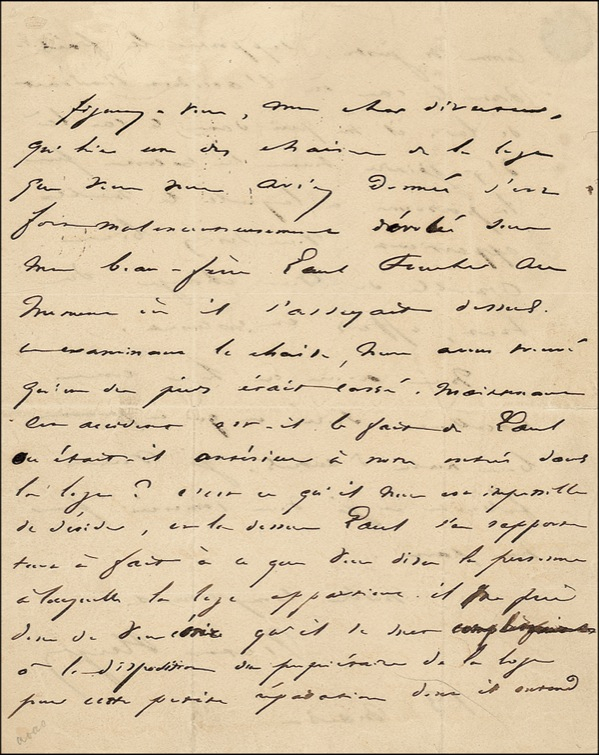 figurez-vous, mon cher directeur,
qu'hier une des chaises de la loge
que vous nous aviez donnée s'est
fort malencontreusement dérobée sous
mon beau-frère Paul Foucher au
moment où il s'asseyait dessus.
en examinant la chaise, nous avons trouvé
qu'un des pieds était cassé. maintenant
cet accident est-il le fait de Paul
ou était-il antérieur à notre entrée dans
la loge ? c'est ce qu'il nous est impossible
de décider, et là-dessus Paul s'en rapporte
tout à fait à ce que vous dira la personne
à laquelle la loge appartient. il me prie
donc de vous écrire qu'il se met complètement
à la disposition du propriétaire de la loge
pour cette petite réparation dont il entend